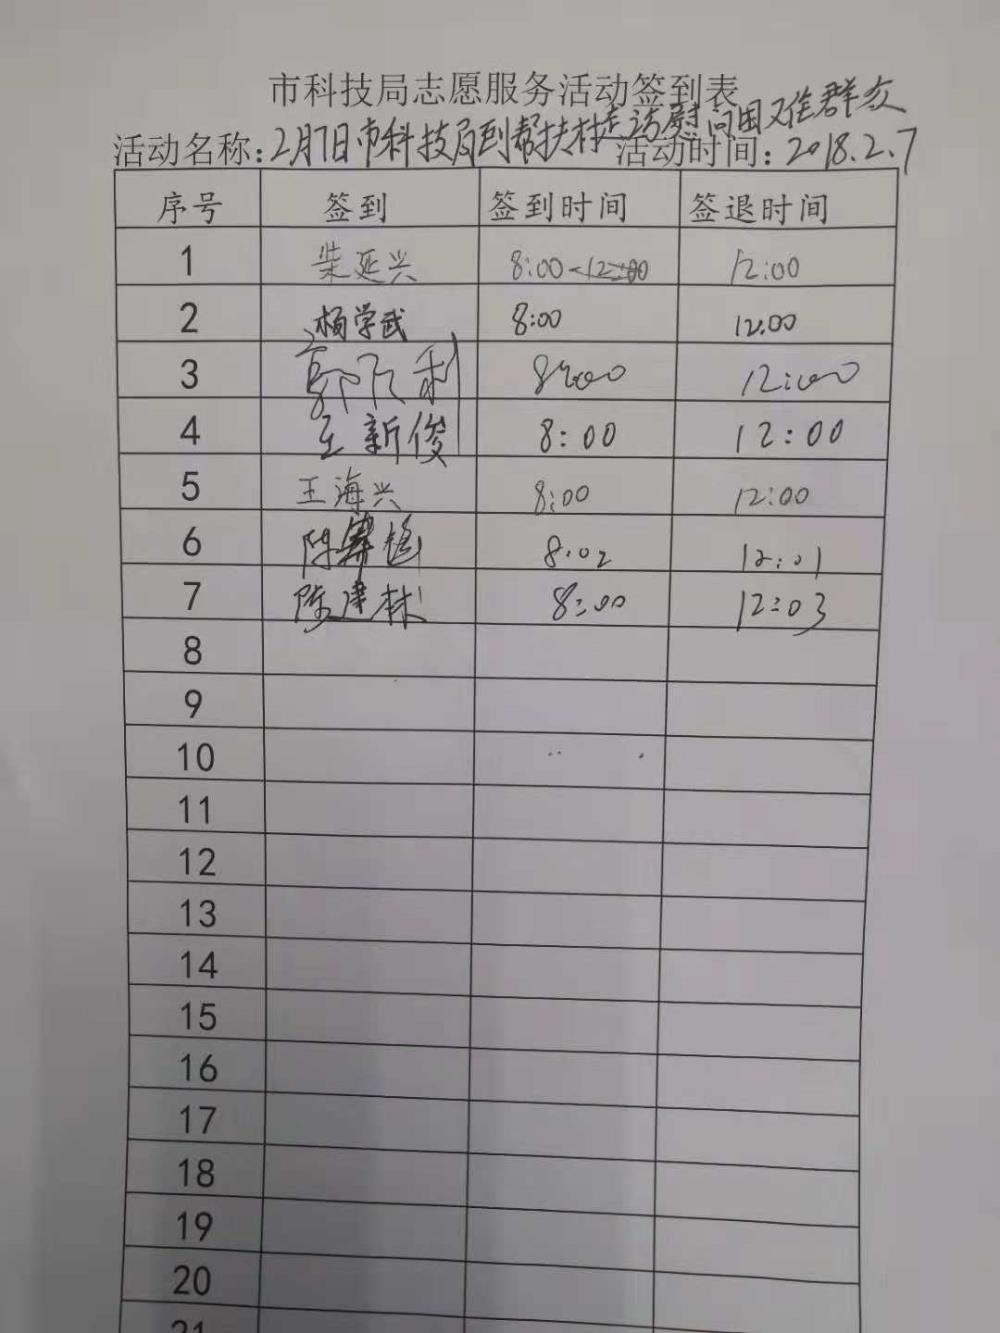 市科技局志愿服务活动签到表
活动名称：2月7日市科技局到帮扶村走访慰问困难群众 活动时间：2018.2.7
序号 签到 签到时间 签退时间
1 柴延兴 8:00-12:00 12:00
2 杨学武 8:00 12.00
3 郭 利 8:00 12:00
4 王新俊 8:00 12:00
5 王海兴 8:00 12:00
6 陈 8.02 12:01
7 陈建林 8:00 12:03
8
9
10
11
12
13
14
15
16
17
18
19
20
21